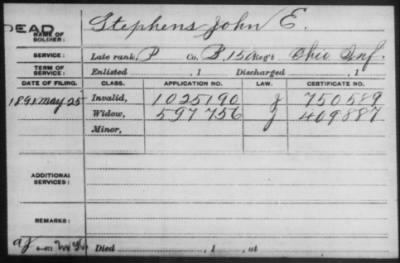 DEAD
NAME OF SOLDIER: Stephens John E.
SERVICE: Late rank, P Co. B, 150 Reg't Ohio Inf.
TERM OF SERVICE: Enlisted , 1 Discharged , 1
DATE OF FILING. CLASS. APPLICATION NO. LAW. CERTIFICATE NO.
1891 May 25 Invalid, 1025190 J 750589
Widow, 597756 J 409887
Minor,
ADDITIONAL SERVICES:
REMARKS:
Died , 1 , at